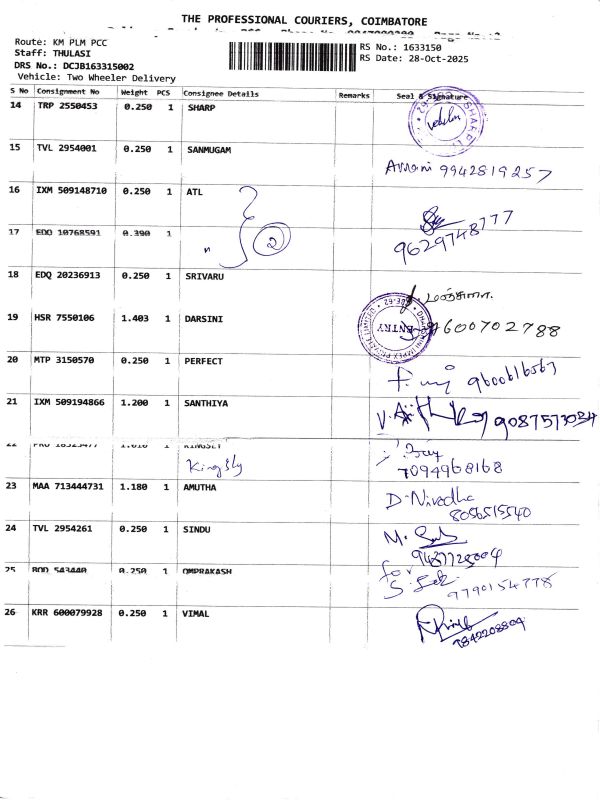 THE PROFESSIONAL COURIERS, COIMBATORE
Route: KM PLM PCC
Staff: THULASI
DRS No.: DCJB163315002
Vehicle: Two Wheeler Delivery
RS No.: 1633150
RS Date: 28-Oct-2025
S No Consignment No Weight PCS Consignee Details Remarks Seal & Signature
14 TRP 2550453 0.250 1 SHARP
15 TVL 2954001 0.250 1 SANMUGAM
Amani 9942819257
16 IXM 509148710 0.250 1 ATL
9629748777
17 EDQ 10768591 0.390 1
" 2
18 EDQ 20236913 0.250 1 SRIVARU
மஞ்சுளா
19 HSR 7550106 1.403 1 DARSINI
ENTRY 9600702788
20 MTP 3150570 0.250 1 PERFECT
9600616563
21 IXM 509194866 1.200 1 SANTHIYA
9087573034
22 1.010 1 KINGSLY
Kingsly 7094968168
23 MAA 713444731 1.180 1 AMUTHA
D. Nivedha
8056515540
24 TVL 2954261 0.250 1 SINDU
M.
9487728004
25 BOD 543440 0.250 1 OMPRAKASH
for
9790154778
26 KRR 600079928 0.250 1 VIMAL
7842208804